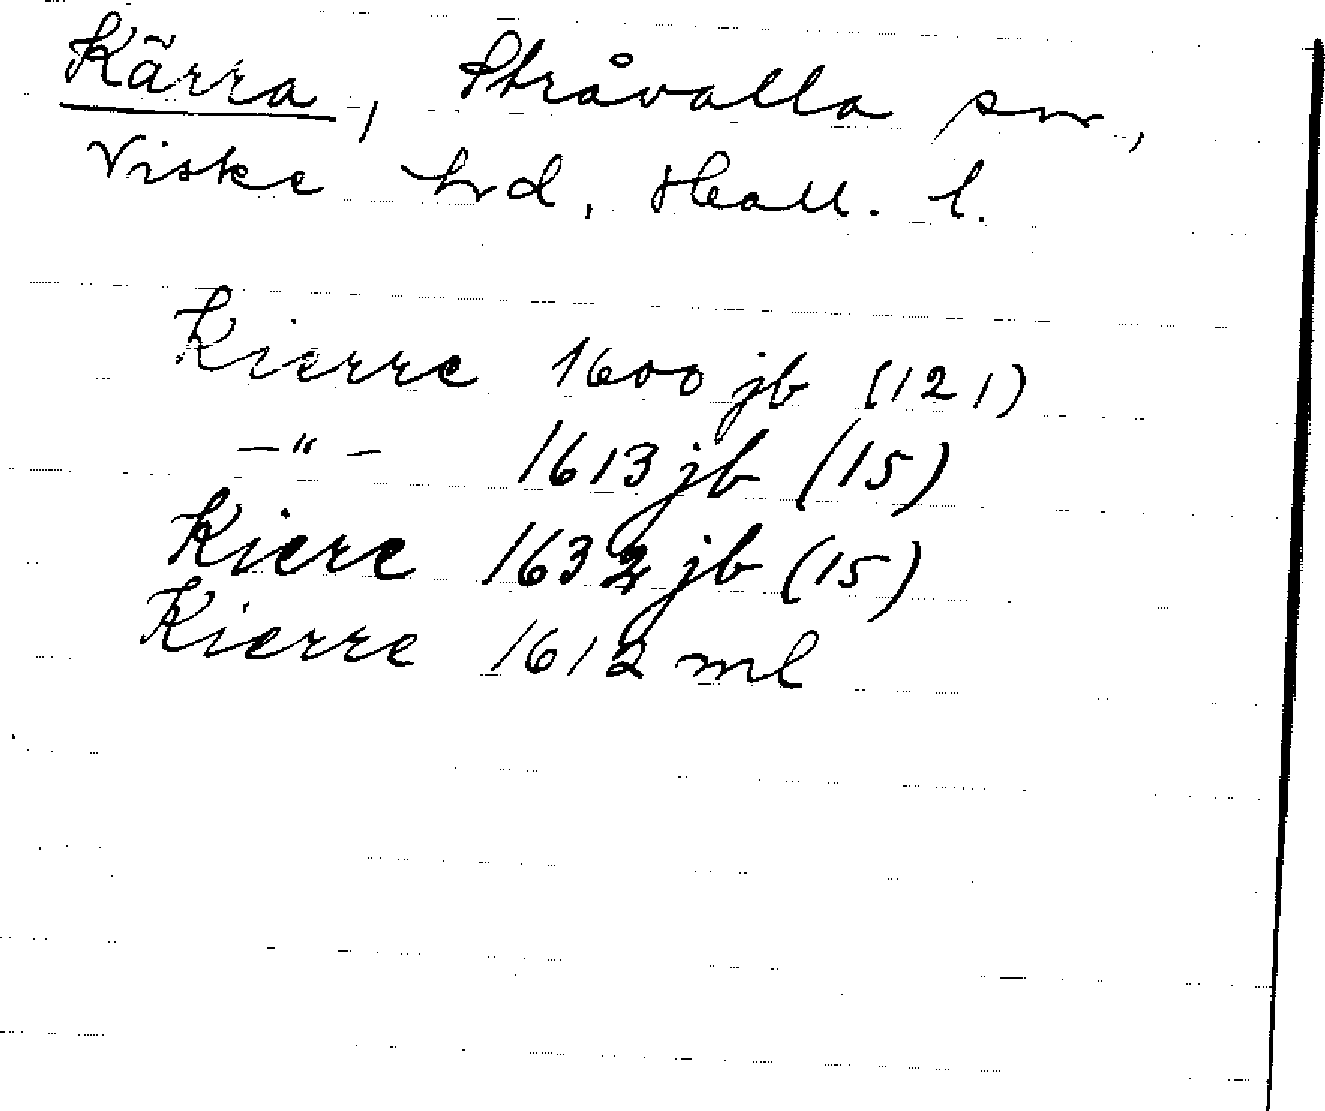 Kärra, Stråvalla sn,
Viske hrd, Hall. l.
Kierre 1600 jb (121)
—"— 1613 jb (15)
Kiere 1632 jb (15)
Kierre 1612 ml